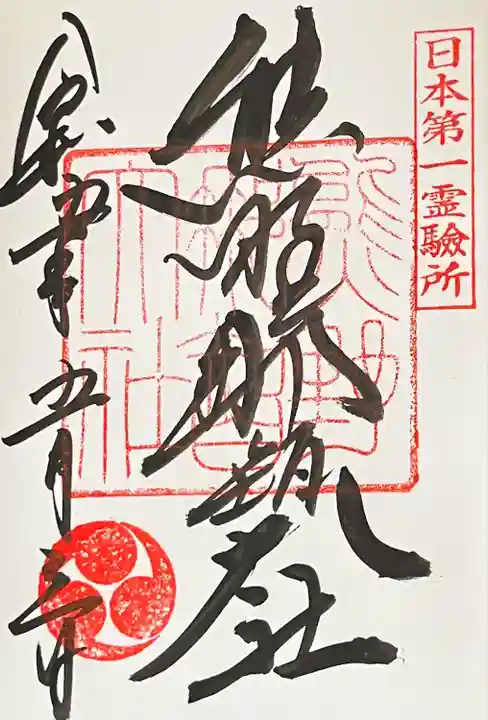 日本第一霊驗所
熊野那智大社
熊野
那智
大社
令和五年五月三日